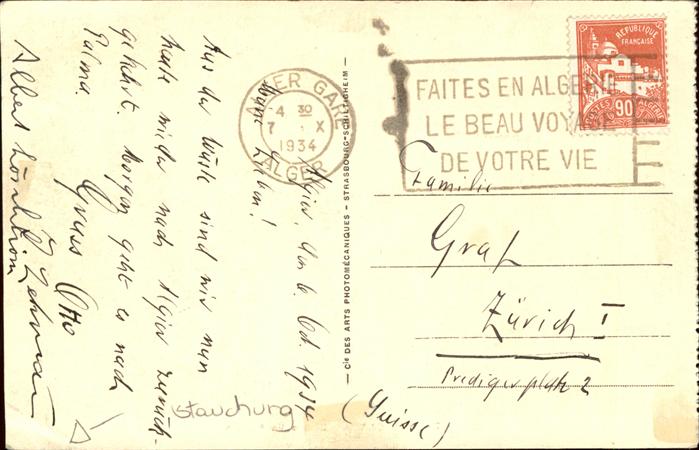 Algier, den 6. Okt. 1934
Meine Lieben!
Aus der Wüste sind wir nun
heute wieder nach Algier zurück-
gekehrt. Morgen geht es nach
Palma
Gruss Otto
Albert
ALGER GARE
4 30
7 X
1934
ALGER
FAITES EN ALGERIE
LE BEAU VOYAGE
DE VOTRE VIE
REPUBLIQUE
FRANÇAISE
POSTES
ALGERIE
90
Cie DES ARTS PHOTOMÉCANIQUES - STRASBOURG-SCHILTIGHEIM
Familie
Graf
Zürich I
Predigerplatz 2
(Suisse)
Stauchung